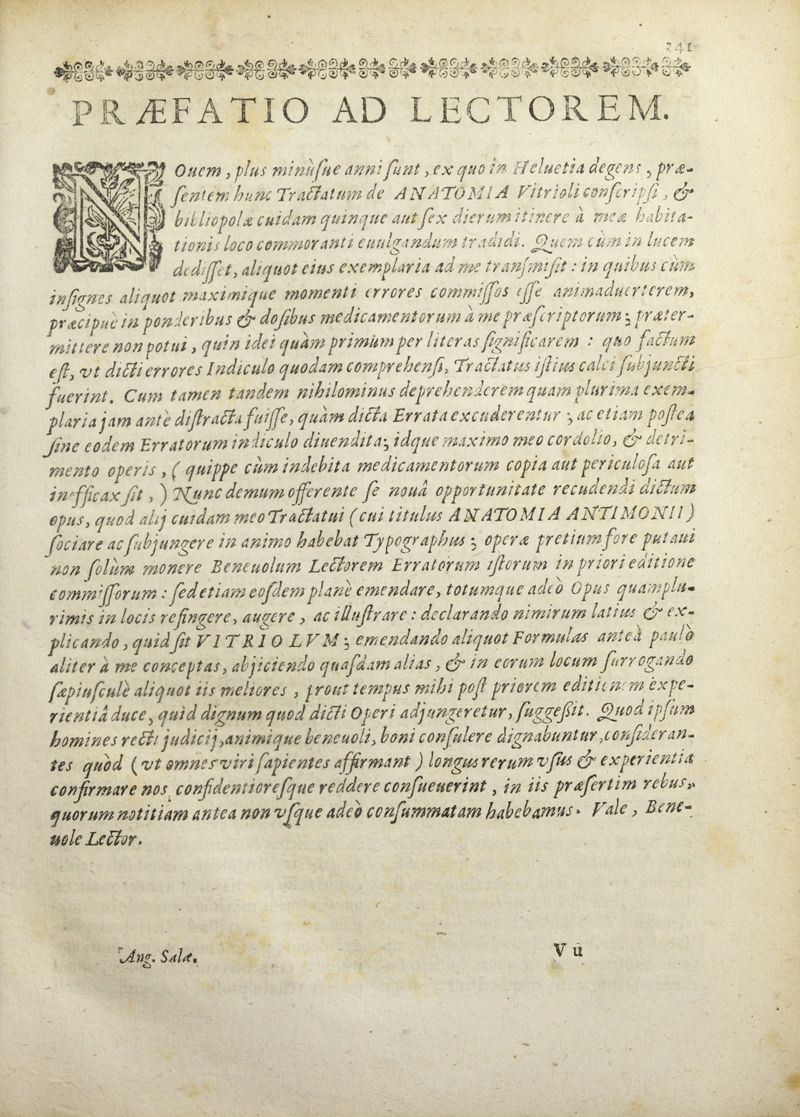 241
PRÆFATIO AD LECTOREM.
NOuem, plus minùſue anni ſunt, ex quo in Heluetia degens, præ-
ſentem hunc Tractatum de ANATOMIA Vitrioli conſcripſi, &
bibliopolæ cuidam quinque aut ſex dierum itinere à meæ habita-
tionis loco commoranti euulgandum tradidi. Quem cùm in lucem
dediſſet, aliquot eius exemplaria ad me tranſmiſit: in quibus cùm
inſignes aliquot maximique momenti errores commiſſos eſſe animaduerterem,
præcipuè in ponderibus & doſibus medicamentorum à me præſcriptorum; præter-
mittere non potui, quin idei quàm primùm per literas ſignificarem: quo factum
eſt, vt dicti errores Indiculo quodam comprehenſi, Tractatus iſtius calci ſubjuncti
fuerint. Cum tamen tandem nihilominus deprehenderem quam plurima exem-
plaria jam antè diſtracta fuiſſe, quàm dicta Errata excuderentur; ac etiam poſtea
ſine eodem Erratorum indiculo diuendita; idque maximo meo cordolio, & detri-
mento operis, (quippe cùm indebita medicamentorum copia aut periculoſa aut
inefficax ſit,) Nunc demum offerente ſe nouâ opportunitate recudendi dictum
opus, quod alij cuidam meo Tractatui (cui titulus ANATOMIA ANTIMONII)
ſociare ac ſubjungere in animo habebat Typographus; operæ pretium fore putaui
non ſolùm monere Beneuolum Lectorem Erratorum iſtorum in priori editione
commiſſorum: ſed etiam eoſdem planè emendare, totumque adeò Opus quamplu-
rimis in locis refingere, augere, ac illuſtrare: declarando nimirum latius & ex-
plicando, quid ſit VITRIOLVM; emendando aliquot Formulas anteà paulò
aliter à me conceptas, abjiciendo quaſdam alias, & in eorum locum ſurrogando
ſæpiuſculè aliquot iis meliores, prout tempus mihi poſt priorem editionem expe-
rientiâ duce, quid dignum quod dicti Operi adjungeretur, ſuggeßit. Quod ipſum
homines recti judicij, animique beneuoli, boni conſulere dignabuntur, conſideran-
tes quòd (vt omnes viri ſapientes affirmant) longus rerum vſus & experientia
confirmare nos, confidentioreſque reddere conſueuerint, in iis præſertim rebus,
quorum notitiam antea non vſque adeò conſummatam habebamus. Vale, Bene-
uole Lector.
Ang. Salæ.
Vu